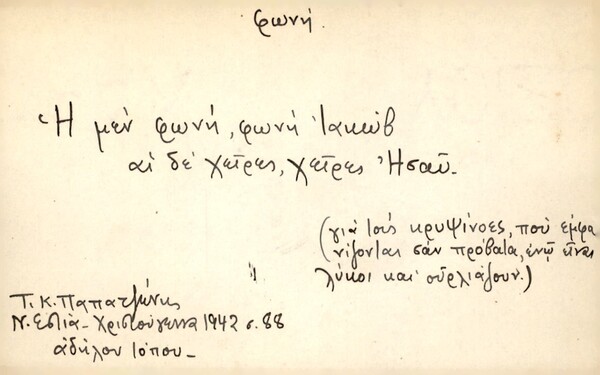 φωνή.
Ἡ μέν φωνή, φωνή Ἰακώβ
αἱ δέ χεῖρες, χεῖρες Ἠσαῦ.
(γιά τούς κρυψίνοες, πού εμφα
νίζονται σάν πρόβατα, ἐνῷ εἶναι
λύκοι καί οὐρλιάζουν.)
Τ. Κ. Παπατζώνης
Ν. Εστία - Χριστούγεννα 1942 σ. 88
ἀδήλου τόπου -